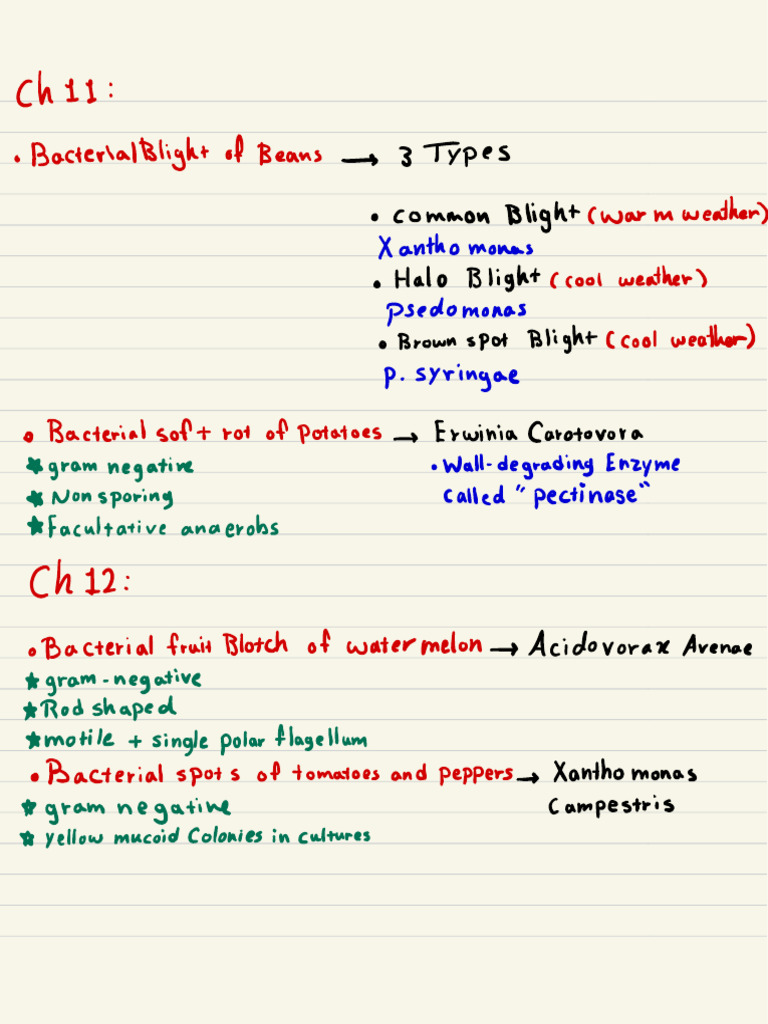 Ch 11:
• Bacterial Blight of Beans → 3 Types
• Common Blight (warm weather)
Xanthomonas
• Halo Blight (cool weather)
Psedomonas
• Brown spot Blight (cool weather)
P. syringae
• Bacterial soft rot of Potatoes → Erwinia Carotovora
★ gram negative • Wall-degrading Enzyme
★ Non sporing called "pectinase"
★ Facultative anaerobs
Ch 12:
• Bacterial fruit Blotch of watermelon → Acidovorax Avenae
★ gram-negative
★ Rod shaped
★ motile + single polar flagellum
• Bacterial spots of tomatoes and peppers → Xanthomonas
★ gram negative Campestris
★ yellow mucoid Colonies in cultures